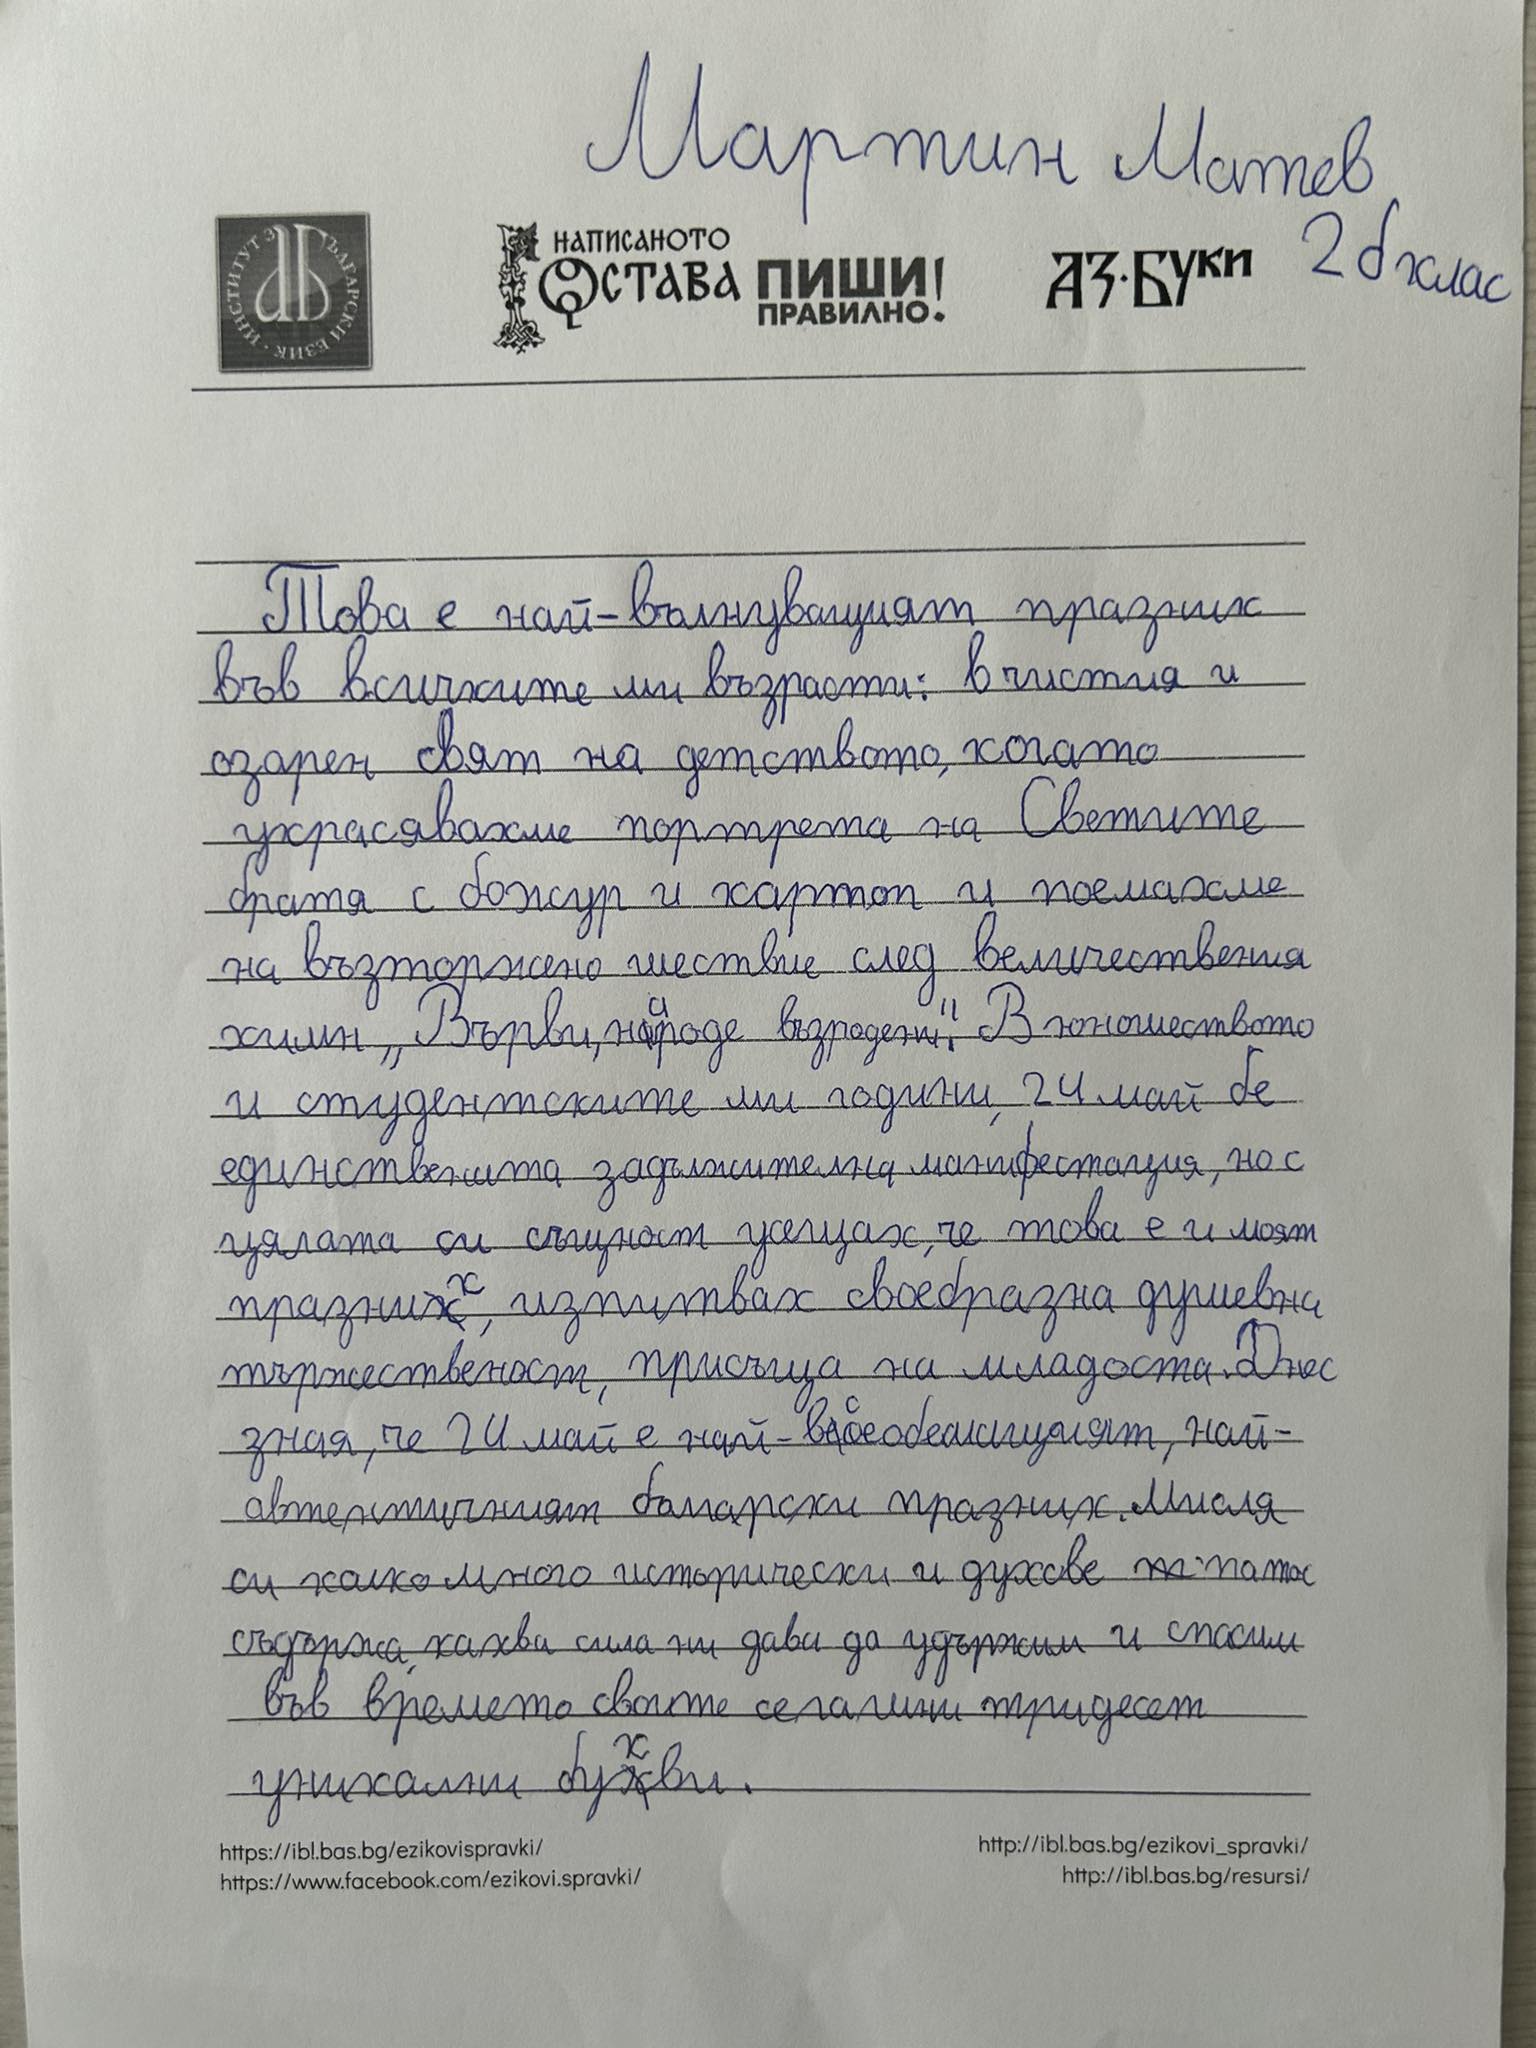 Мартин Матев
2 б клас
ИНСТИТУТ ЗА БЪЛГАРСКИ ЕЗИК
НАПИСАНОТО
ОСТАВА ПИШИ!
ПРАВИЛНО.
АЗ·БУКИ
Това е най-вълнуващият празник
във всичките ми възрасти: в чистия и
озарен свят на детството, когато
украсявахме портрета на Светите
братя с божур и картоп и поемахме
на възторжено шествие след величествения
химн „Върви, народе възродени". В юношеството
и студентските ми години, 24 май бе
единствената задължителна манифестация, но с
цялата си същност усещах, че това е и моят
празник, изпитвах своебразна душевна
тържественост, присъща на младоста. Днес
зная, че 24 май е най-всеобемащият, най-
автентичният български празник. Мисля
си колко много исторически и духове патос
съдържа, каква сила ни дава да удържим и спасим
във времето своите сегашни тридесет
уникални букви.
https://ibl.bas.bg/ezikovispravki/ http://ibl.bas.bg/ezikovi_spravki/
https://www.facebook.com/ezikovi.spravki/ http://ibl.bas.bg/resursi/